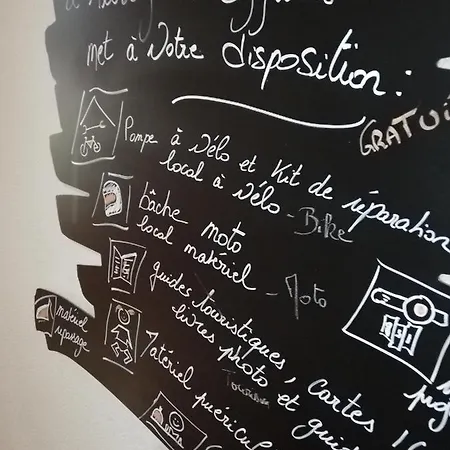 met à Votre disposition :
GRATUI
Pompe à Vélo et Kit de réparation
local à Vélo - Bike
Bâche moto
local matériel - Moto
guides touristiques, cartes
livres photo et guid
Tourism
matériel
repassage
Matériel puéricul